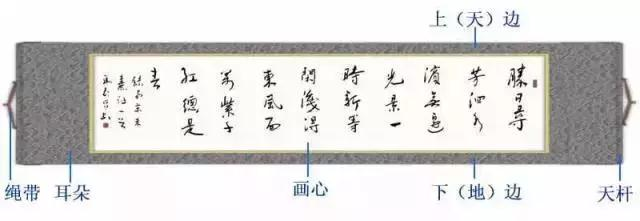 上（天）边
勝日尋
芳泗水
濱無邊
光景一
時新等
閒識得
東風面
萬紫千
紅總是
春
绳带
耳朵
画心
下（地）边
天杆